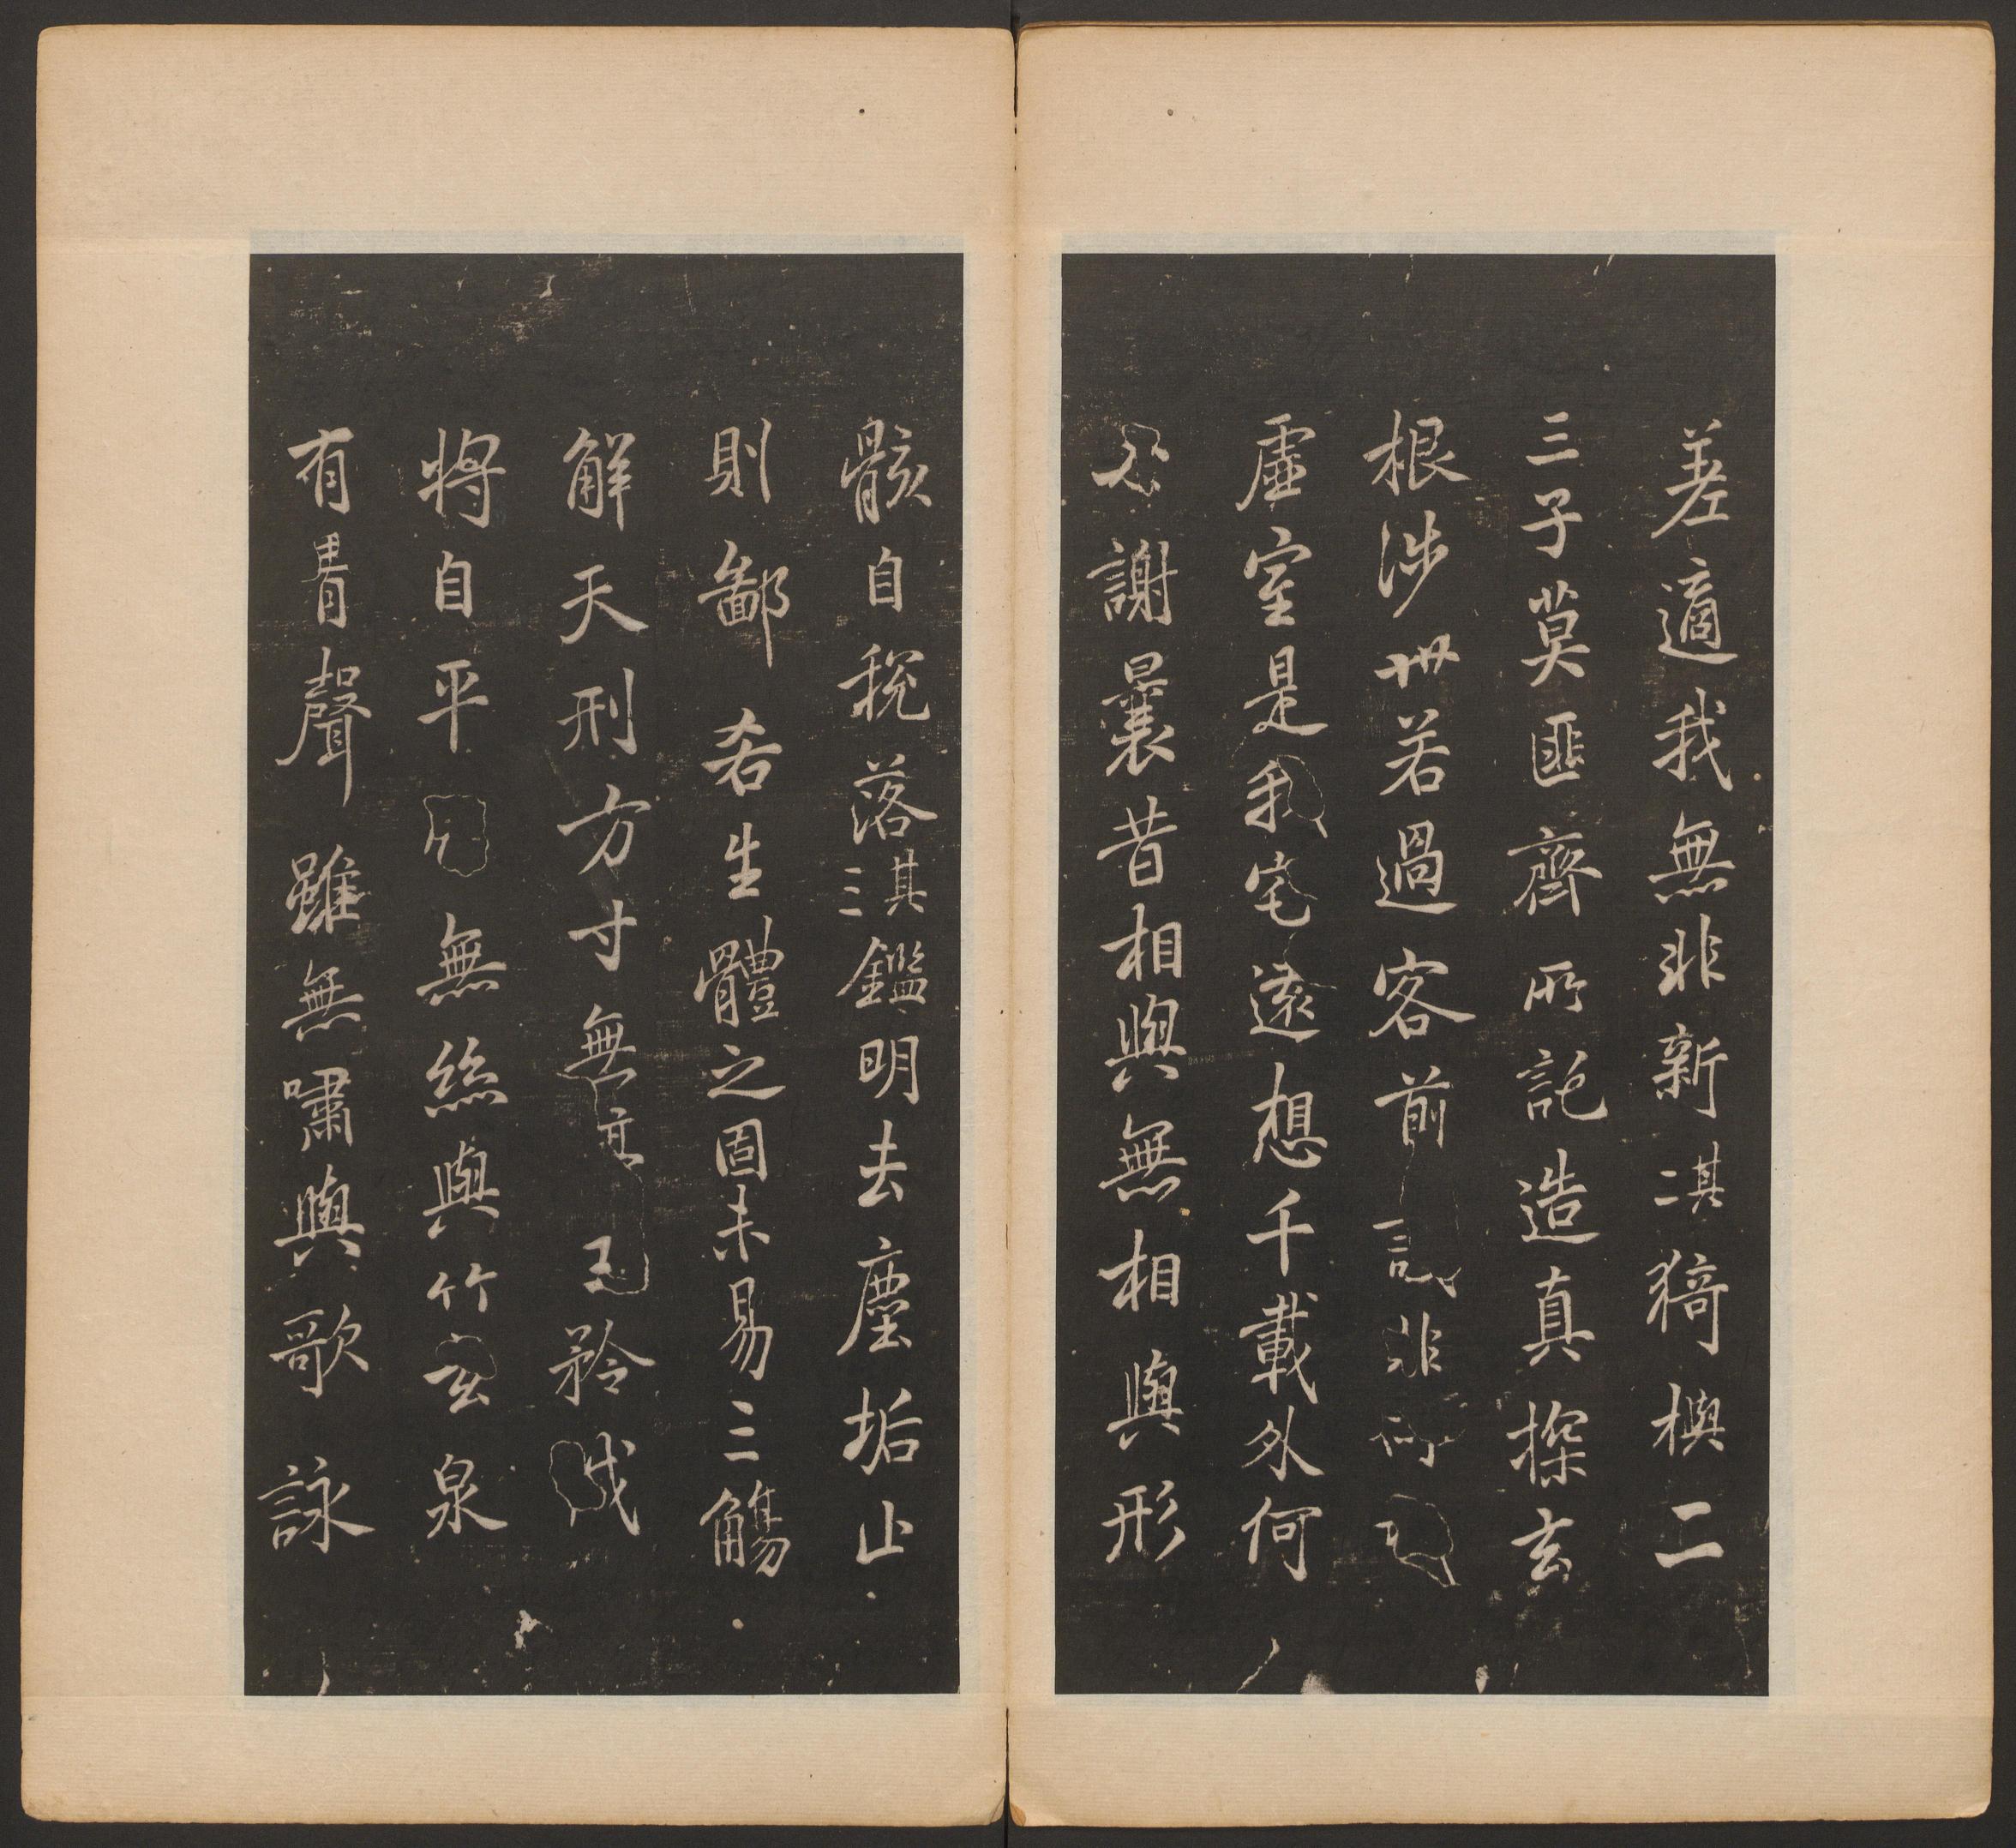 差適我無非新其二猗與二
三子莫匪齊所託造真探玄
根涉世若過客前識非所
虛室是我宅遠想千載外何
謝曩昔相與無相與形
骸自稅落其三鑑明去塵垢止
則鄙吝生體之固未易三觴
解天刑方寸無王矜伐
將自平無絲與竹玄泉
有清聲雖無嘯與歌詠